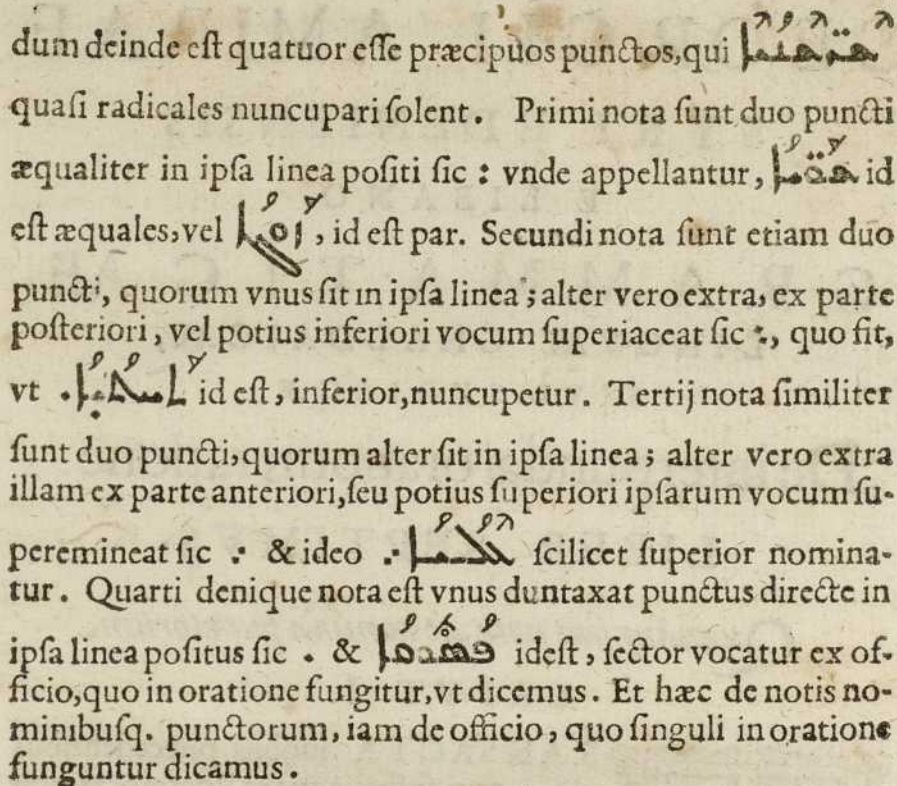 dum deinde eſt quatuor eſſe præcipuos punctos, qui ܫܶܪ̈ܫܳܢܳܝܶܐ
quaſi radicales nuncupari ſolent. Primi nota ſunt duo puncti
æqualiter in ipſa linea poſiti ſic : vnde appellantur, ܫܰܘ̈ܝܳܐ id
eſt æquales, vel ܙܰܘܓܳܐ, id eſt par. Secundi nota ſunt etiam duo
puncti, quorum vnus ſit in ipſa linea; alter vero extra, ex parte
poſteriori, vel potius inferiori vocum ſuperiaceat ſic ܆, quo fit,
vt ܬܰܚܬܳܝܳܐ. id eſt, inferior, nuncupetur. Tertij nota ſimiliter
ſunt duo puncti, quorum alter ſit in ipſa linea; alter vero extra
illam ex parte anteriori, ſeu potius ſuperiori ipſarum vocum ſu-
peremineat ſic ܇ & ideo ܥܶܠܳܝܳܐ܇ ſcilicet ſuperior nomina-
tur. Quarti denique nota eſt vnus duntaxat punctus directe in
ipſa linea poſitus ſic . & ܦܳܣܽܘܩܳܐ ideſt, ſector vocatur ex of-
ficio, quo in oratione fungitur, vt dicemus. Et hæc de notis no-
minibuſq. punctorum, iam de officio, quo ſinguli in oratione
funguntur dicamus.